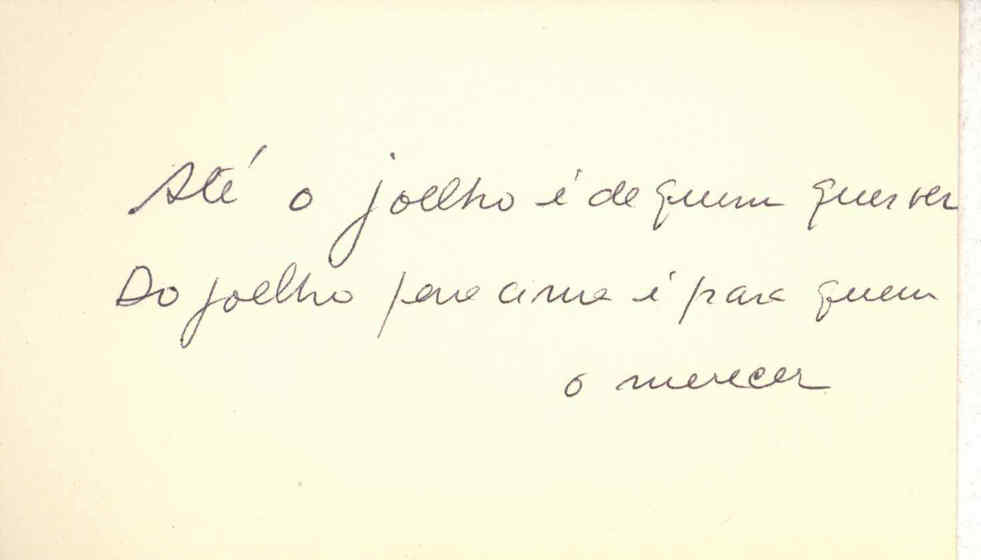 Até o joelho é de quem quer ver
Do joelho para cima é para quem
o merecer